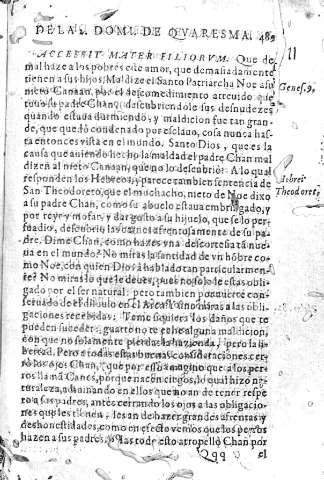 DE LAS DOMI. DE QVARESMA. 489
ACCESSIT MATER FILIORVM. Que de
mal haze a los pobres este amor, que demasiadamente
tienen a sus hijos, Maldize el Santo Patriarcha Noe a su
nieto Canaan, por el descomedimiento atreuido que
tuuo su padre Chan, descubriendole sus desnudezes
quando estaua durmiendo, y maldicion fue tan gran-
de, que quedò condenado por esclauo, cosa nunca has-
ta entonces vista en el mundo. Santo Dios, que es la
causa que auiendo hecho la maldad el padre Chan mal
dizen al nieto Canaan, que no lo descubriò? A lo qual
responden los Hebreos, y parece tambien sentencia de
San Theodoreto, que el muchacho, nieto de Noe dixo
a su padre Chan, como su abuelo estaua embriagado, y
por reyr y mofar, y dar gusto a su hijuelo, que se lo per-
suadio, descubriò las carnes afrentosamente de su pa-
dre. Dime Chan, como hazes vna descortesia tã nue-
ua en el mundo? No miras la santidad de vn hõbre co-
mo Noe, con quien Dios à hablado tan particularmen-
te? No miras lo que le deues, pues no solo le estas obli-
gado por el ser natural: pero tambien por auerte con-
seruado en el diluuio en el Arca? No miras a las obli-
gaciones recebidas? Teme siquiera los daños que te
pueden suceder: guarte no te eche alguna maldicion,
con que no solamente pierdas la hazienda, pero la li-
bertad. Pero a todas estas buenas consideraciones cer-
rò los ojos Chan, que por esso imagino que a los per-
ros llamã Canes, porque nacen ciegos, lo qual hizo na-
turaleza, adiuinando en ellos que no an de tener respe-
to a sus padres, antes cerrando los ojos a las obligacio-
nes que les tienen, les an de hazer grandes afrentas y
deshonestidades, como en efecto vemos que los perros
hazen a sus padres, por todo esto atropellò Chan por
Qqq el
11
Genes. 9.
Hebrei
Theodoret.